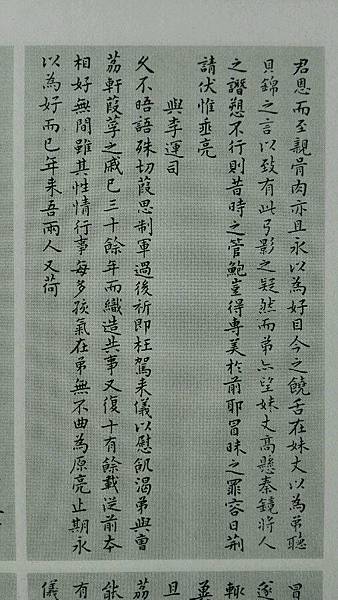 君恩而至親骨肉亦且永以為好目今之饒舌在妹丈以為弟聽
貝錦之言以致有此弓影之疑然而弟亦望妹丈高懸秦鏡將人
之譖愬不行則昔時之管鮑豈得專美於前耶冒昧之罪容日荆
請伏惟垂亮
與李運司
久不晤語殊切葭思制軍過後祈即枉駕来儀以慰飢渴弟與曹
荔軒葭莩之戚已三十餘年而織造共事又復十有餘載從前本
相好無間雖其性情行事每多孩氣在弟無不曲為原亮止期永
以為好而已年来吾兩人又荷
冒
遂
輒
並
且
荔
能
有
儀